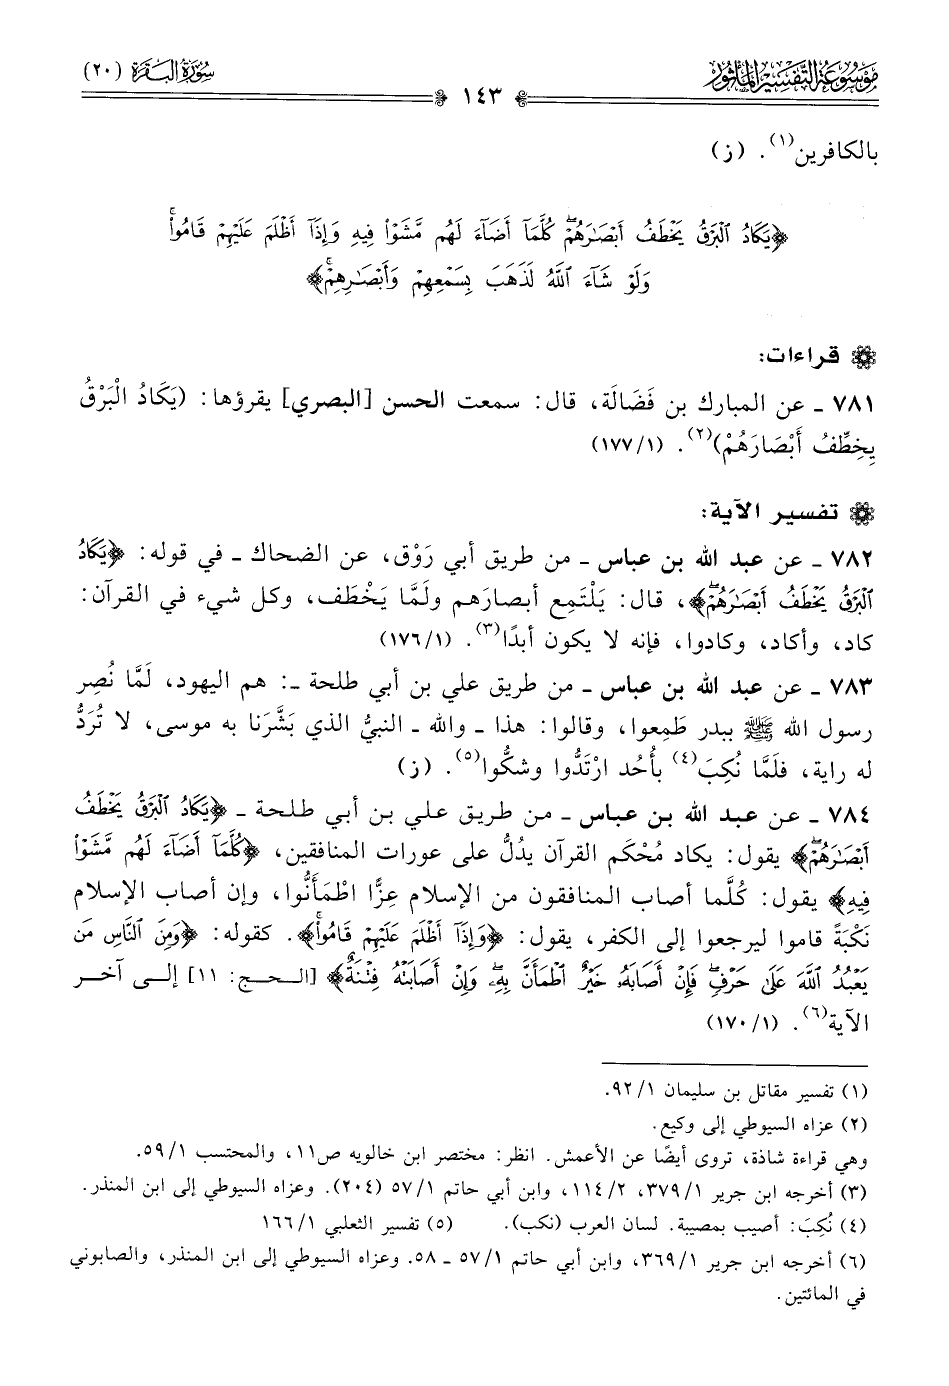 موسوعة التفسير المأثور
١٤٣
سورة البقرة (٢٠)
بالكافرين(١). (ز)
﴿يَكَادُ ٱلۡبَرۡقُ يَخۡطَفُ أَبۡصَٰرَهُمۡۖ كُلَّمَآ أَضَآءَ لَهُم مَّشَوۡاْ فِيهِ وَإِذَآ أَظۡلَمَ عَلَيۡهِمۡ قَامُواْۚ
وَلَوۡ شَآءَ ٱللَّهُ لَذَهَبَ بِسَمۡعِهِمۡ وَأَبۡصَٰرِهِمۡۚ﴾
قراءات:
٧٨١ ـ عن المبارك بن فَضَالَة، قال: سمعت الحسن [البصري] يقرؤها: (يَكَادُ الْبَرْقُ
يِخِطِّفُ أَبْصَارَهُمْ)(٢). (١/ ١٧٧)
تفسير الآية:
٧٨٢ ـ عن عبد الله بن عباس ـ من طريق أبي رَوْق، عن الضحاك ـ في قوله: ﴿يَكَادُ
ٱلۡبَرۡقُ يَخۡطَفُ أَبۡصَٰرَهُمۡۖ﴾، قال: يَلْتَمِع أبصارَهم ولَمَّا يَخْطَف، وكل شيء في القرآن:
كاد، وأكاد، وكادوا، فإنه لا يكون أبدًا(٣). (١/ ١٧٦)
٧٨٣ ـ عن عبد الله بن عباس ـ من طريق علي بن أبي طلحة ـ: هم اليهود، لَمَّا نُصِر
رسول الله ﷺ ببدر طَمِعوا، وقالوا: هذا ـ والله ـ النبيُّ الذي بَشَّرَنا به موسى، لا تُرَدُّ
له راية، فلَمَّا نُكِبَ(٤) بأُحُد ارْتَدُّوا وشكُّوا(٥). (ز)
٧٨٤ ـ عن عبد الله بن عباس ـ من طريق علي بن أبي طلحة ـ ﴿يَكَادُ ٱلۡبَرۡقُ يَخۡطَفُ
أَبۡصَٰرَهُمۡۖ﴾ يقول: يكاد مُحْكَم القرآن يدُلُّ على عورات المنافقين، ﴿كُلَّمَآ أَضَآءَ لَهُم مَّشَوۡاْ
فِيهِ﴾ يقول: كُلَّما أصاب المنافقون من الإسلام عِزًّا اطْمَأَنُّوا، وإن أصاب الإسلام
نَكْبَةً قاموا ليرجعوا إلى الكفر، يقول: ﴿وَإِذَآ أَظۡلَمَ عَلَيۡهِمۡ قَامُواْۚ﴾. كقوله: ﴿وَمِنَ ٱلنَّاسِ مَن
يَعۡبُدُ ٱللَّهَ عَلَىٰ حَرۡفٖۖ فَإِنۡ أَصَابَهُۥ خَيۡرٌ ٱطۡمَأَنَّ بِهِۦۖ وَإِنۡ أَصَابَتۡهُ فِتۡنَةٌ﴾ [الحج: ١١] إلى آخر
الآية(٦). (١/ ١٧٠)
(١) تفسير مقاتل بن سليمان ١/ ٩٢.
(٢) عزاه السيوطي إلى وكيع.
وهي قراءة شاذة، تروى أيضًا عن الأعمش. انظر: مختصر ابن خالويه ص١١، والمحتسب ١/ ٥٩.
(٣) أخرجه ابن جرير ١/ ٣٧٩، ٢/ ١١٤، وابن أبي حاتم ١/ ٥٧ (٢٠٤). وعزاه السيوطي إلى ابن المنذر.
(٤) نُكِبَ: أصيب بمصيبة. لسان العرب (نكب). (٥) تفسير الثعلبي ١/ ١٦٦
(٦) أخرجه ابن جرير ١/ ٣٦٩، وابن أبي حاتم ١/ ٥٧ ـ ٥٨. وعزاه السيوطي إلى ابن المنذر، والصابوني
في المائتين.